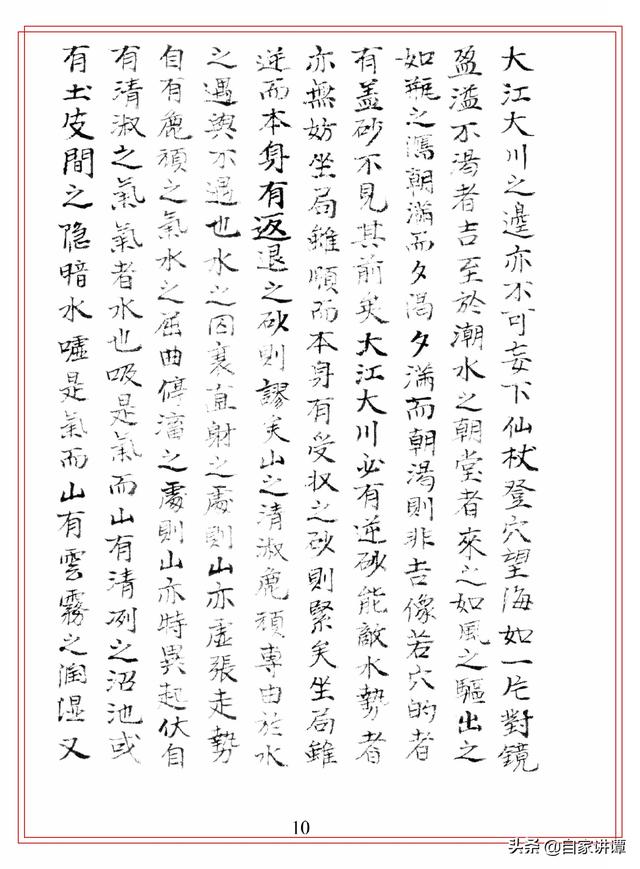 大江大川之邊亦不可妄下仙杖登穴望海如一片對鏡
盈溢不渴者吉至於潮水之朝堂者來之如風之驅出之
如瓶之瀉朝滿而夕渴夕滿而朝渴則非吉像若穴的者
有盖砂不見其前矣大江大川必有逆砂能敵水勢者
亦無妨坐局雖順而本身有受收之砂則緊矣坐局雖
逆而本身有返退之砂則謬矣山之清淑麁頑專由於水
之遇與不遇也水之囚裹直射之處則山亦虛張走勢
自有麁頑之氣水之屈曲停滀之處則山亦特異起伏自
有清淑之氣氣者水也吸是氣而山有清冽之沼池或
有土皮間之隐暗水噓是氣而山有雲霧之潤湿又
10
头条 @自家讲谭